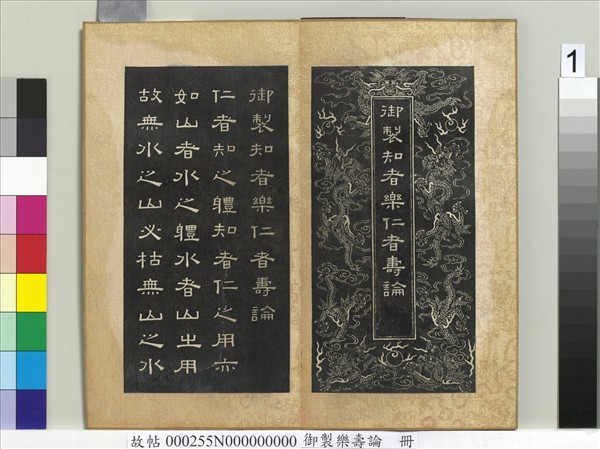 御製知者樂仁者壽論
御製知者樂仁者壽論
仁者知之體知者仁之用亦
如山者水之體水者山之用
故無水之山必枯無山之水
1
故帖 000255N000000000 御製樂壽論 冊